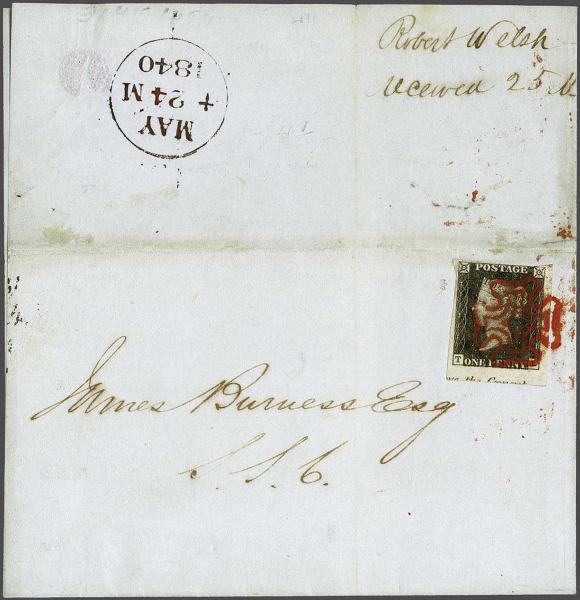 Robert Welsh
received 25 M
MAY
+ 24 M
1840
POSTAGE
T
ONE PENNY
James Burness Esq
S. S. C.